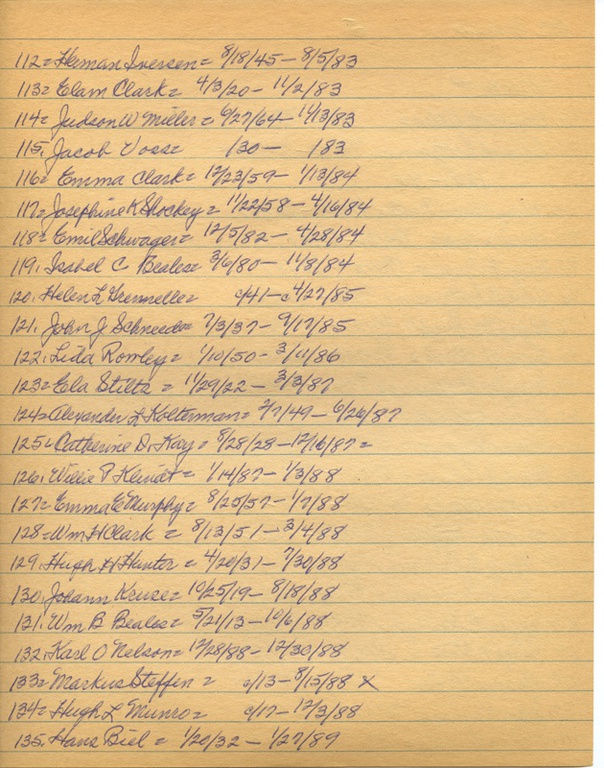 112= Heman Iversen= 8/18/45 - 8/5/83
113= Elam Clark= 4/3/20 - 11/2/83
114= Judson W Miller= 6/27/64 - 11/13/83
115, Jacob Voss= /30 - /83
116= Emma Clark= 12/23/59 - 1/13/84
117= Josephine K Shockey= 11/22/58 - 4/16/84
118= Emil Schwager= 12/5/82 - 4/28/84
119, Isabel C Beales= 3/6/80 - 11/8/84
120, Helen L c/41 - c 4/27/85
121, John J Schneede= 7/3/37 - 9/17/85
122, Lida Romley= 1/10/50 - 3/11/86
123= Ela Stiltz = 11/29/22 - 3/3/87
124= Alexander L Kolterman= 2/7/49 - 6/26/87
125= Catherine D. Kay= 8/28/28 - 12/16/87=
126, Willie P Kleindt= 1/14/87 - 1/3/88
127= Emma E Murphy= 8/25/57 - 1/7/88
128= Wm H Clark = 8/13/51 - 3/4/88
129, Hugh H Hunter = 4/20/31 - 7/30/88
130, Johann Kruse= 10/25/19 - 8/18/88
131, Wm B Beales= 5/21/13 - 10/6/88
132, Karl O Nelson= 12/28/88 - 12/30/88
133= Markus Steffin = c/13 - 8/15/88 x
134= Hugh L Munro= c/17 - 12/3/88
135, Hans Biel = 1/20/32 - 1/27/89